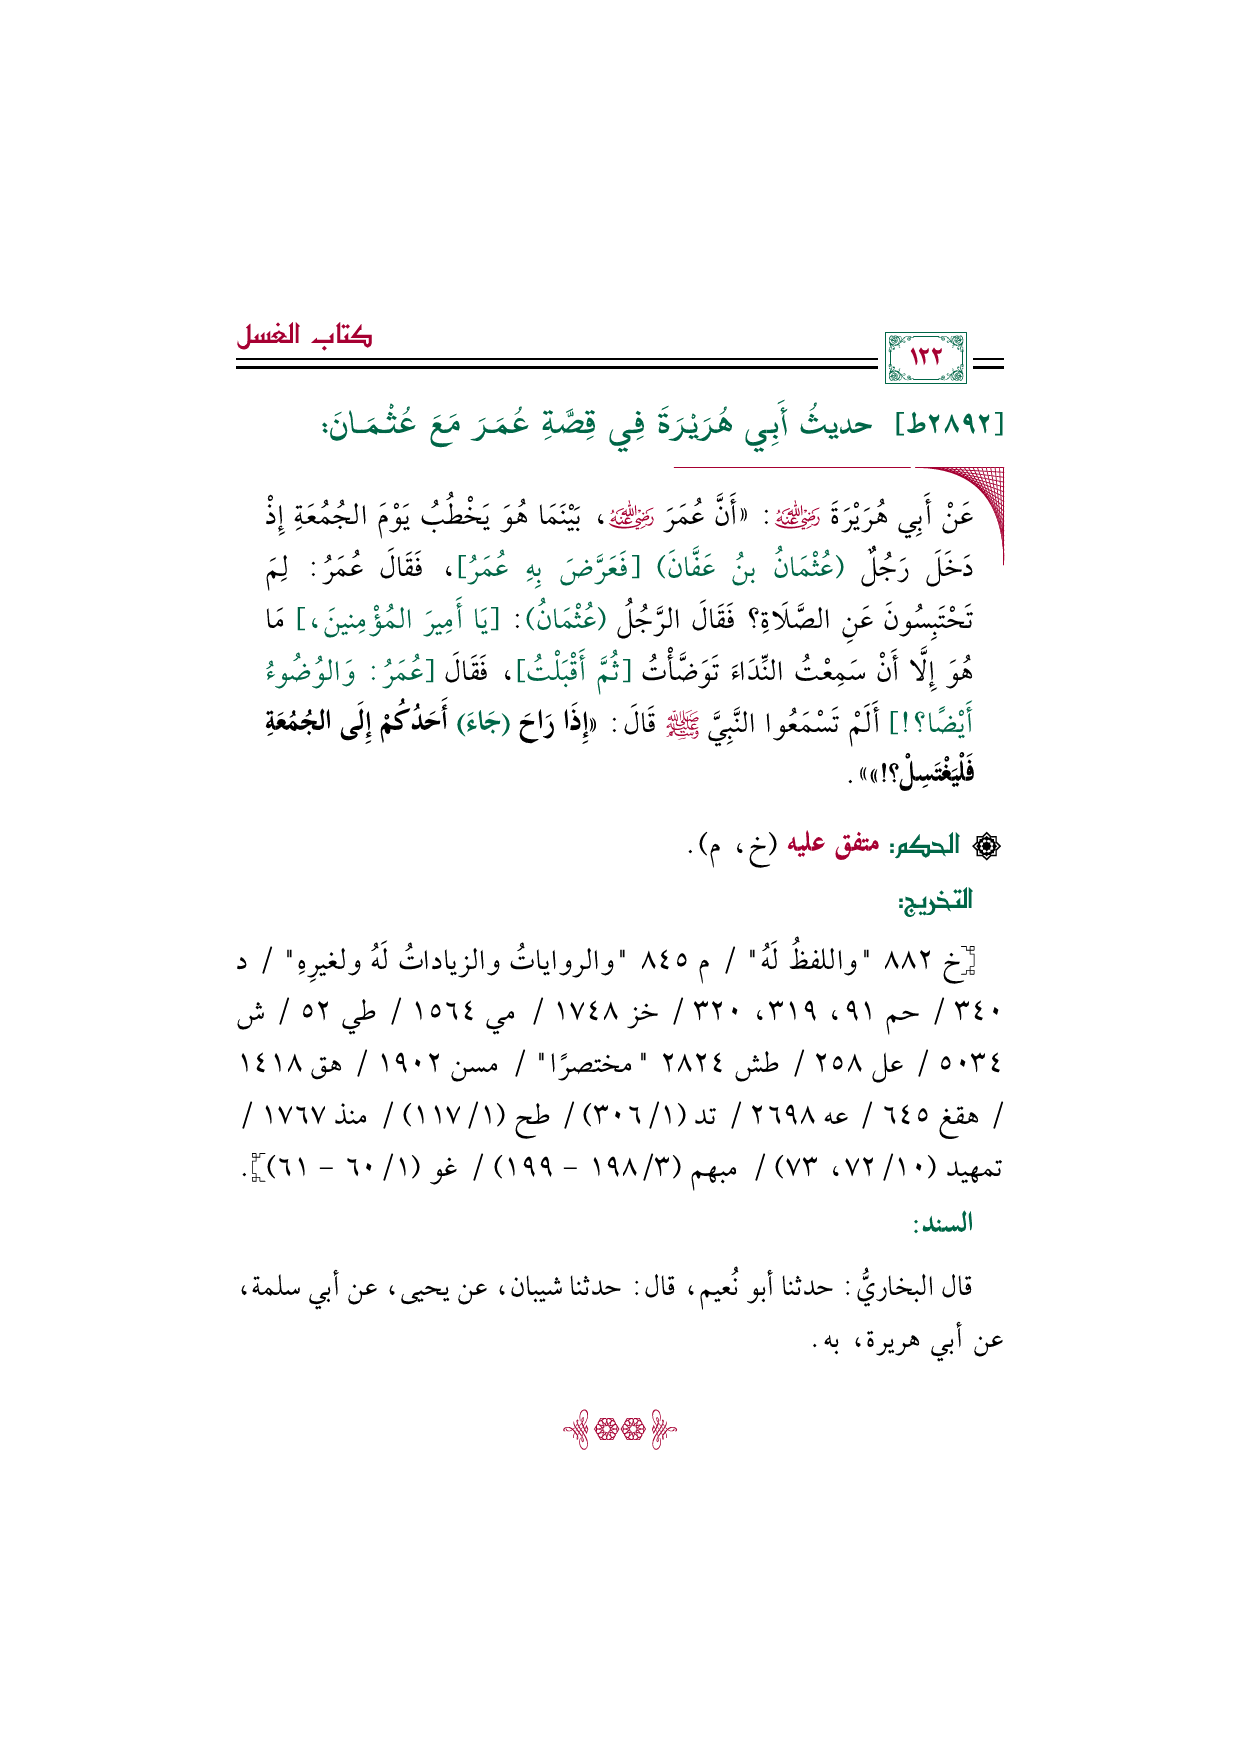 كتاب الغسل
١٢٢
[٢٨٩٢ط] حديثُ أَبِي هُرَيْرَةَ فِي قِصَّةِ عُمَرَ مَعَ عُثْمَانَ:
عَنْ أَبِي هُرَيْرَةَ رضي الله عنه: «أَنَّ عُمَرَ رضي الله عنه، بَيْنَمَا هُوَ يَخْطُبُ يَوْمَ الجُمُعَةِ إِذْ
دَخَلَ رَجُلٌ (عُثْمَانُ بنُ عَفَّانَ) [فَعَرَّضَ بِهِ عُمَرُ]، فَقَالَ عُمَرُ: لِمَ
تَحْتَبِسُونَ عَنِ الصَّلَاةِ؟ فَقَالَ الرَّجُلُ (عُثْمَانُ): [يَا أَمِيرَ المُؤْمِنينَ،] مَا
هُوَ إِلَّا أَنْ سَمِعْتُ النِّدَاءَ تَوَضَّأْتُ [ثُمَّ أَقْبَلْتُ]، فَقَالَ [عُمَرُ: وَالوُضُوءُ
أَيْضًا؟!] أَلَمْ تَسْمَعُوا النَّبِيَّ ﷺ قَالَ: «إِذَا رَاحَ (جَاءَ) أَحَدُكُمْ إِلَى الجُمُعَةِ
فَلْيَغْتَسِلْ؟!»».
الحكم: متفق عليه (خ، م).
التخريج:
[خ ٨٨٢ "واللفظُ لَهُ" / م ٨٤٥ "والرواياتُ والزياداتُ لَهُ ولغيرِهِ" / د
٣٤٠ / حم ٩١، ٣١٩، ٣٢٠ / خز ١٧٤٨ / مي ١٥٦٤ / طي ٥٢ / ش
٥٠٣٤ / عل ٢٥٨ / طش ٢٨٢٤ "مختصرًا" / مسن ١٩٠٢ / هق ١٤١٨
/ هقغ ٦٤٥ / عه ٢٦٩٨ / تد (١/ ٣٠٦) / طح (١/ ١١٧) / منذ ١٧٦٧ /
تمهيد (١٠/ ٧٢، ٧٣) / مبهم (٣/ ١٩٨ – ١٩٩) / غو (١/ ٦٠ – ٦١)].
السند:
قال البخاريُّ: حدثنا أبو نُعيم، قال: حدثنا شيبان، عن يحيى، عن أبي سلمة،
عن أبي هريرة، به.